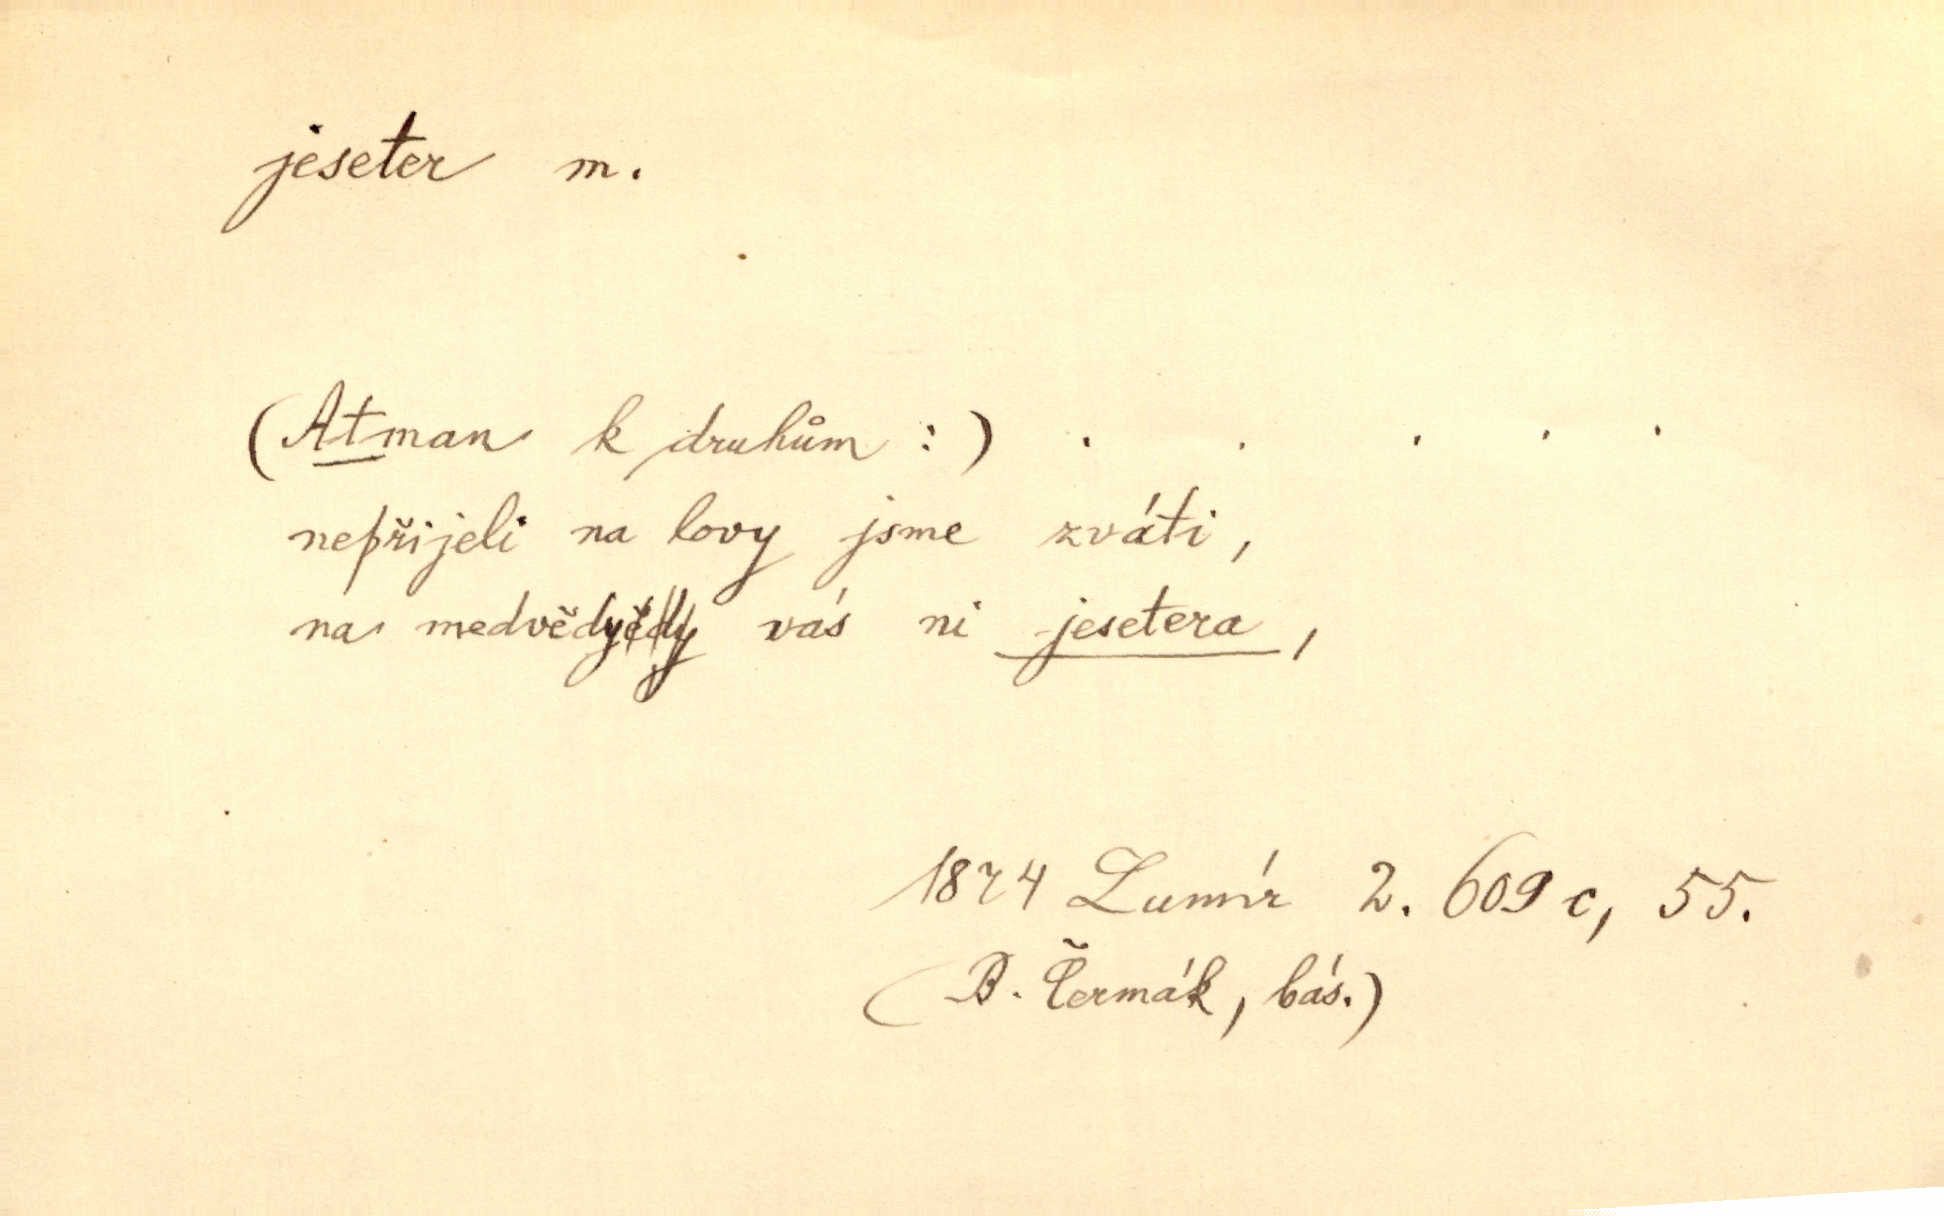 jeseter m.
(Atman k druhům :) . . . . .
nepřijeli na lovy jsme zváti,
na medvědy vás ni jesetera,
1874 Lumír 2. 609 c, 55.
(B. Čermák, bás.)